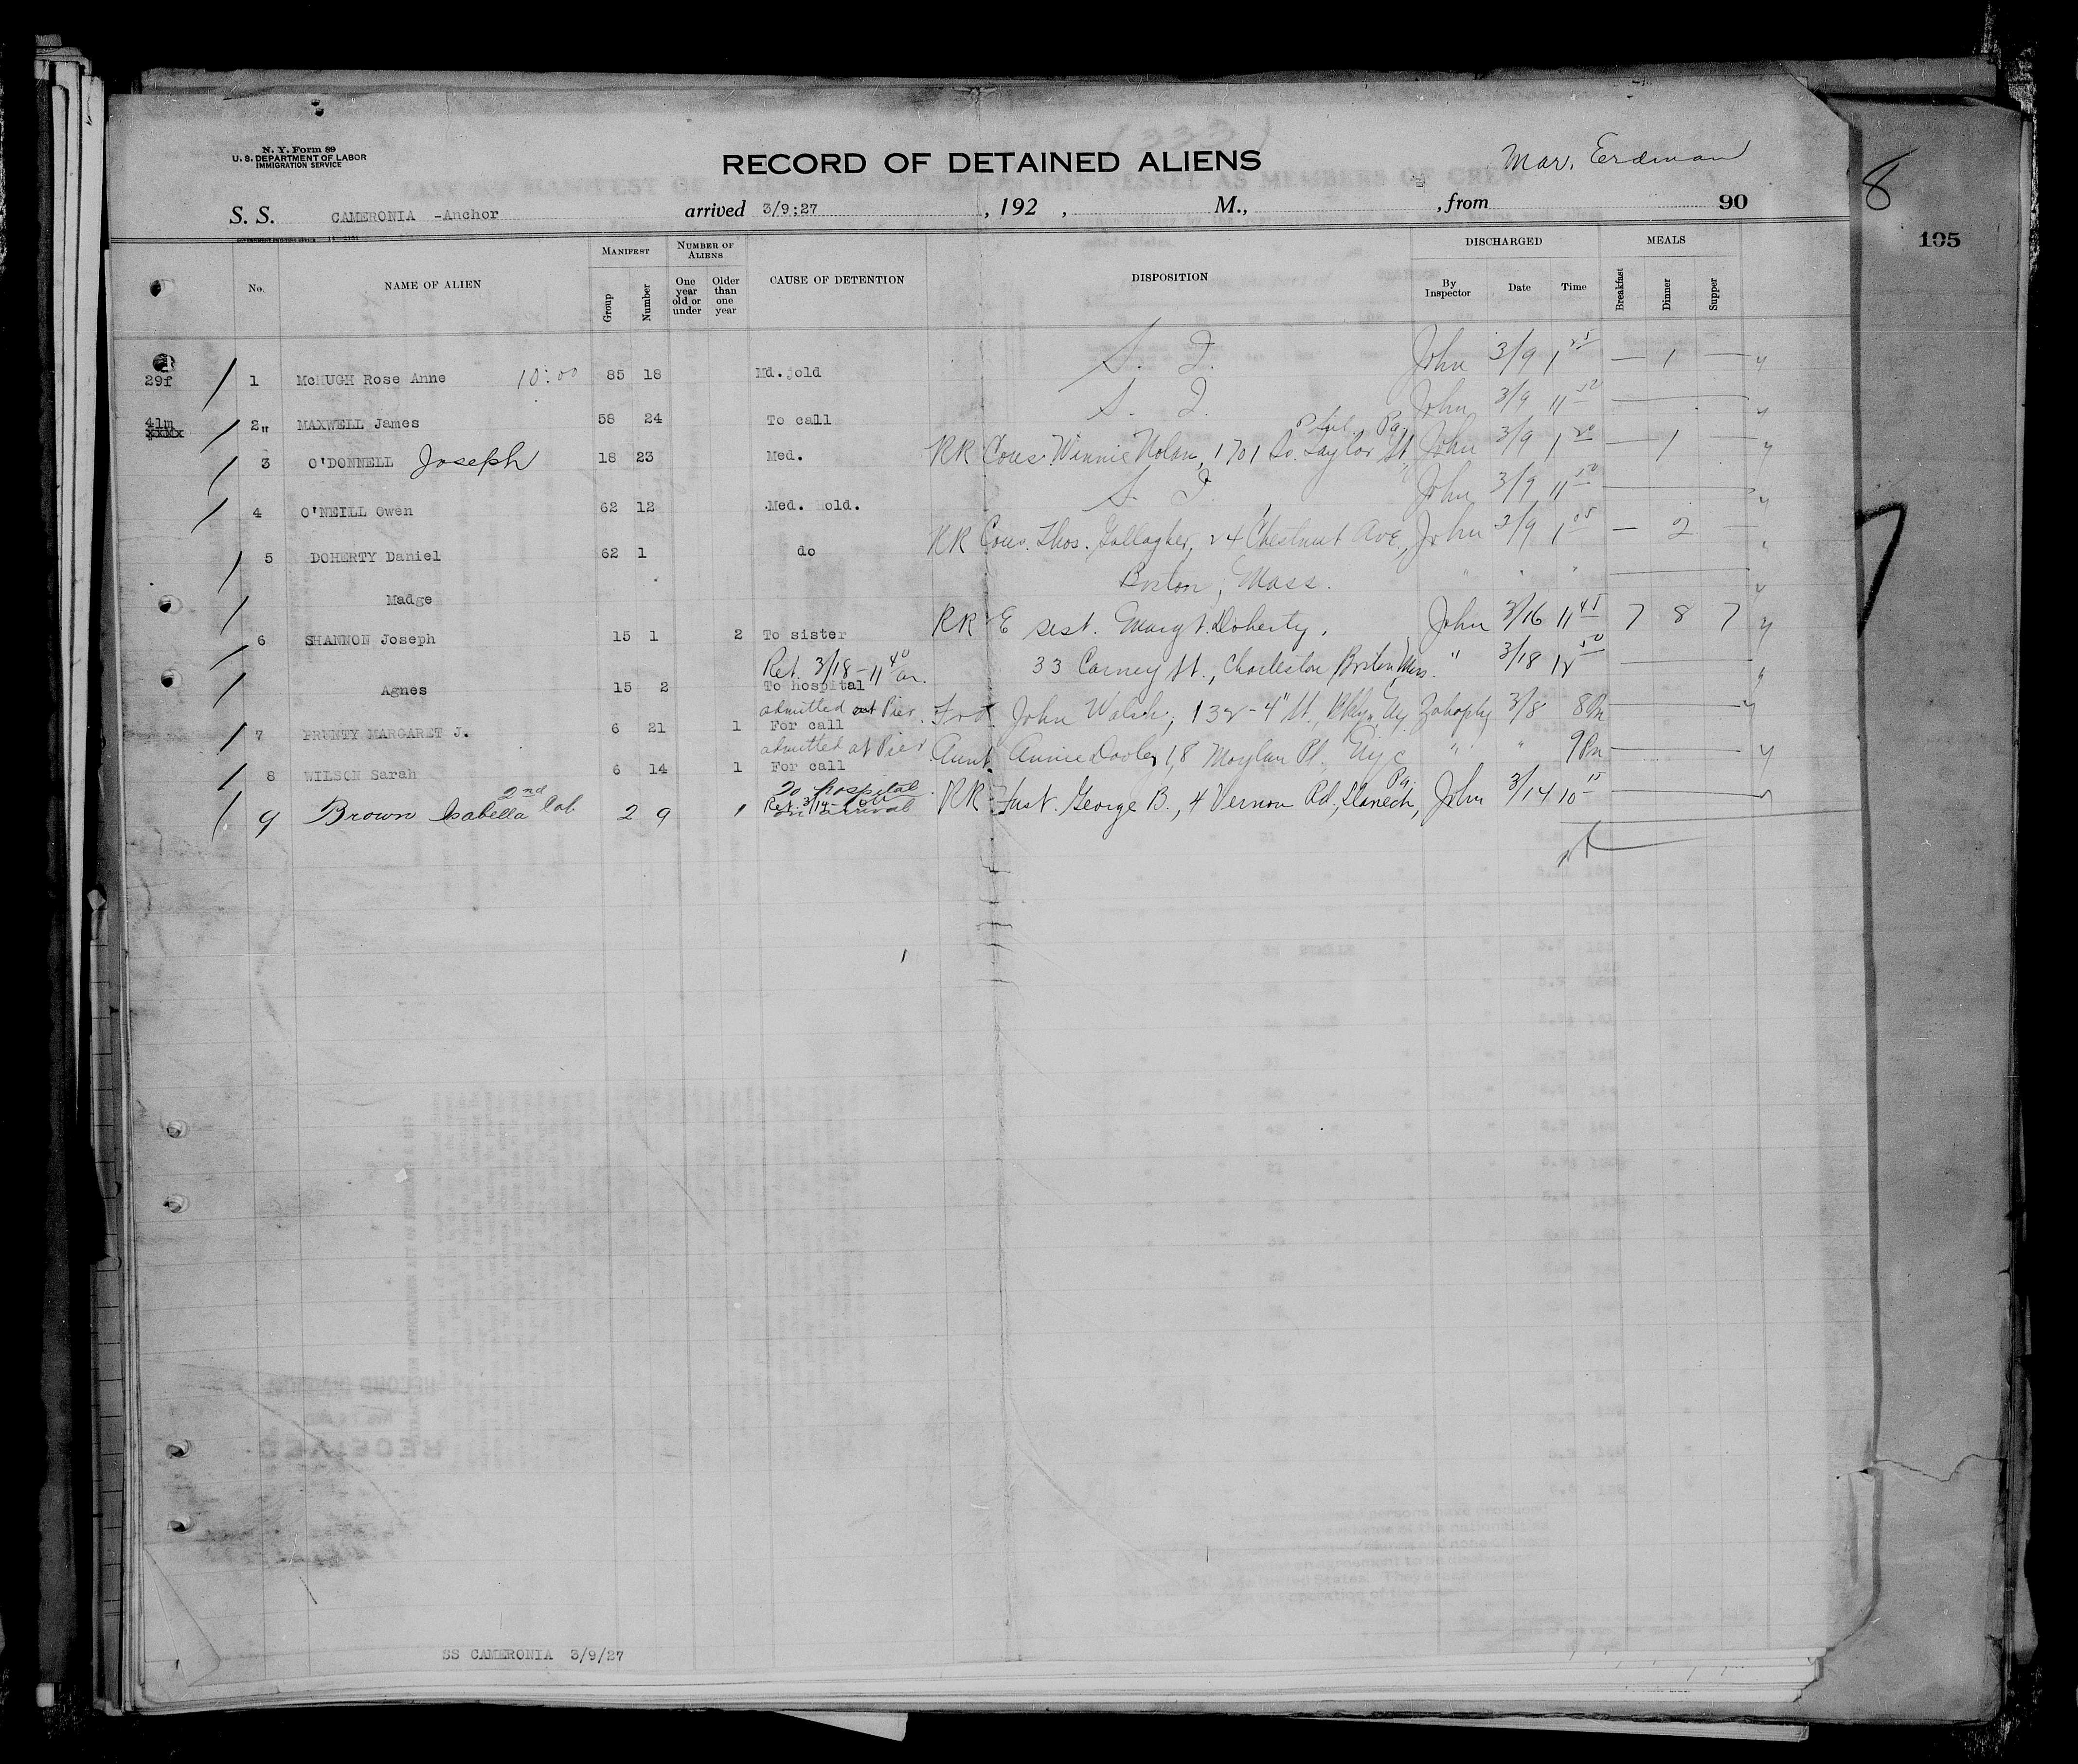 N. Y. Form 89
U. S. DEPARTMENT OF LABOR
IMMIGRATION SERVICE
RECORD OF DETAINED ALIENS
Mar. Erdman
8
S. S. CAMERONIA -Anchor arrived 3/9:27 , 192 , M., , from 90
105
No. NAME OF ALIEN MANIFEST Group Number NUMBER OF ALIENS One year old or under Older than one year CAUSE OF DETENTION DISPOSITION DISCHARGED By Inspector Date Time MEALS Breakfast Dinner Supper
29f 1 McHUGH Rose Anne 10:00 85 18 Md. old S. I. John 3/9 1 25 — 1 —
41m 2 MAXWELL James 58 24 To call S. I. John 3/9 11 50
Phil. Pa.
3 O'DONNELL Joseph 18 23 Med. RR Cous. Winnie Nolan, 1701 So. Taylor St John 3/9 1 20 — 1 —
4 O'NEILL Owen 62 12 Med. old. S. I. John 3/9 11 50
5 DOHERTY Daniel 62 1 do RR Cous. Thos. Gallagher, 24 Chestnut Ave., John 3/9 1 05 — 2 —
Madge Boston, Mass. " " "
6 SHANNON Joseph 15 1 2 To sister RR E sist. Mary Doherty, John 3/16 11 45 7 8 7
Ret. 3/18 - 11 40 an.
Agnes 15 2 To hospital 33 Carney St., Charleston Boston, Mass. " 3/18 12 50
admitted at Pier
7 PRUNTY MARGARET J. 6 21 1 For call Frd. John Walsh, 132 - 4" St., Bklyn, Ny 3/8 8 Pm
admitted at Pier
8 WILSON Sarah 6 14 1 For call Aunt Annie Dooley, 18 Moylan Pl. Nyc " " 9 Pm
To hospital
Ret. 3/14
on arrival
9 Brown Isabella 2nd Cab 2 9 1 RR Hust. George B., 4 Vernon Rd., Llanech, Pa. John 3/14 10 15
SS CAMERONIA 3/9/27